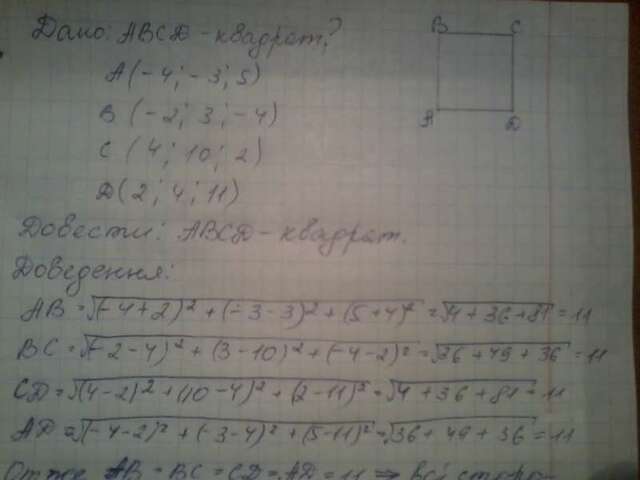 Дано: ABCD - квадрат?
B C
A (-4; -3; 5)
B (-2; 3; -4)
A D
C (4; 10; 2)
D (2; 4; 11)
Довести: ABCD - квадрат.
Доведення:
AB = √(-4+2)² + (-3-3)² + (5+4)² = √4 + 36 + 81 = 11
BC = √(-2-4)² + (3-10)² + (-4-2)² = √36 + 49 + 36 = 11
CD = √(4-2)² + (10-4)² + (2-11)² = √4 + 36 + 81 = 11
AD = √(-4-2)² + (-3-4)² + (5-11)² = √36 + 49 + 36 = 11
Отже AB = BC = CD = AD = 11 ⇒ всі сторо-